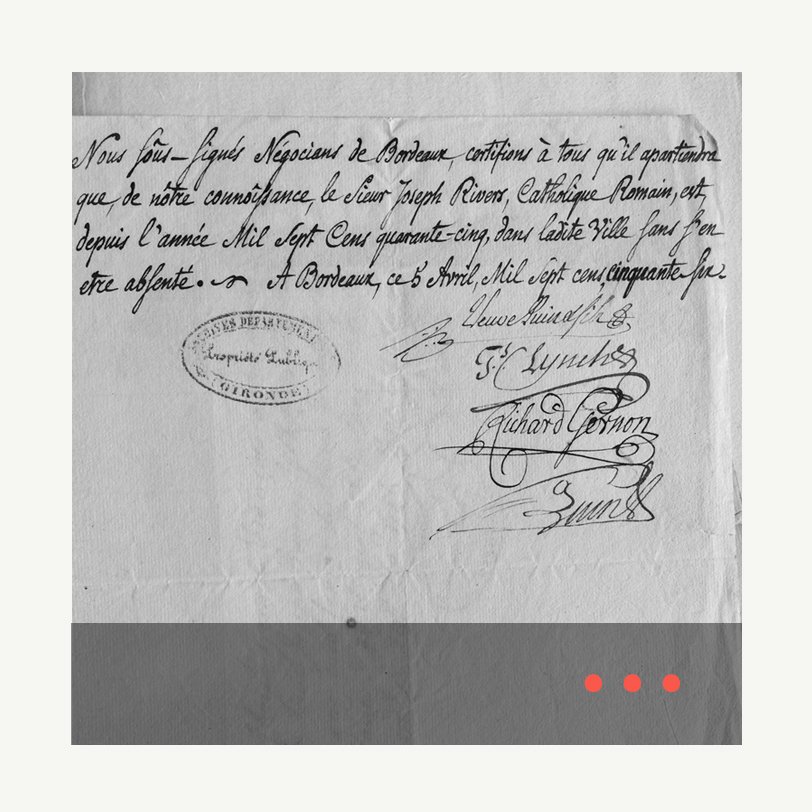 Nous sous-signés Négocians de Bordeaux, certifions à tous qu'il apartiendra
que, de nôtre connoissance, le Sieur Joseph Rivers, Catholique Romain, est,
depuis l'année Mil Sept Cens quarante-cinq, dans ladite Ville sans s'en
etre absenté. A Bordeaux, ce 5 Avril, Mil Sept cens cinquante six.
Veuve Quin & fils
Lynch
Richard Gernon
Quin
ARCHIVES DEPARTEMENTALES
Propriété Publique
GIRONDE